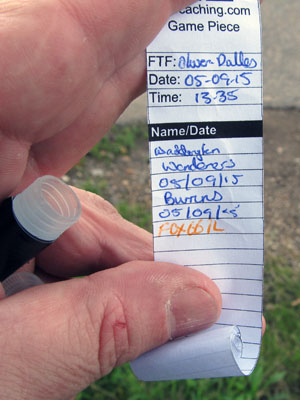 caching.com
Game Piece
FTF: Dalles
Date: 05-09-15
Time: 13:35
Name/Date
Waddington
Wanderers
05/09/15
Burrins
05/09/15
FOX661L